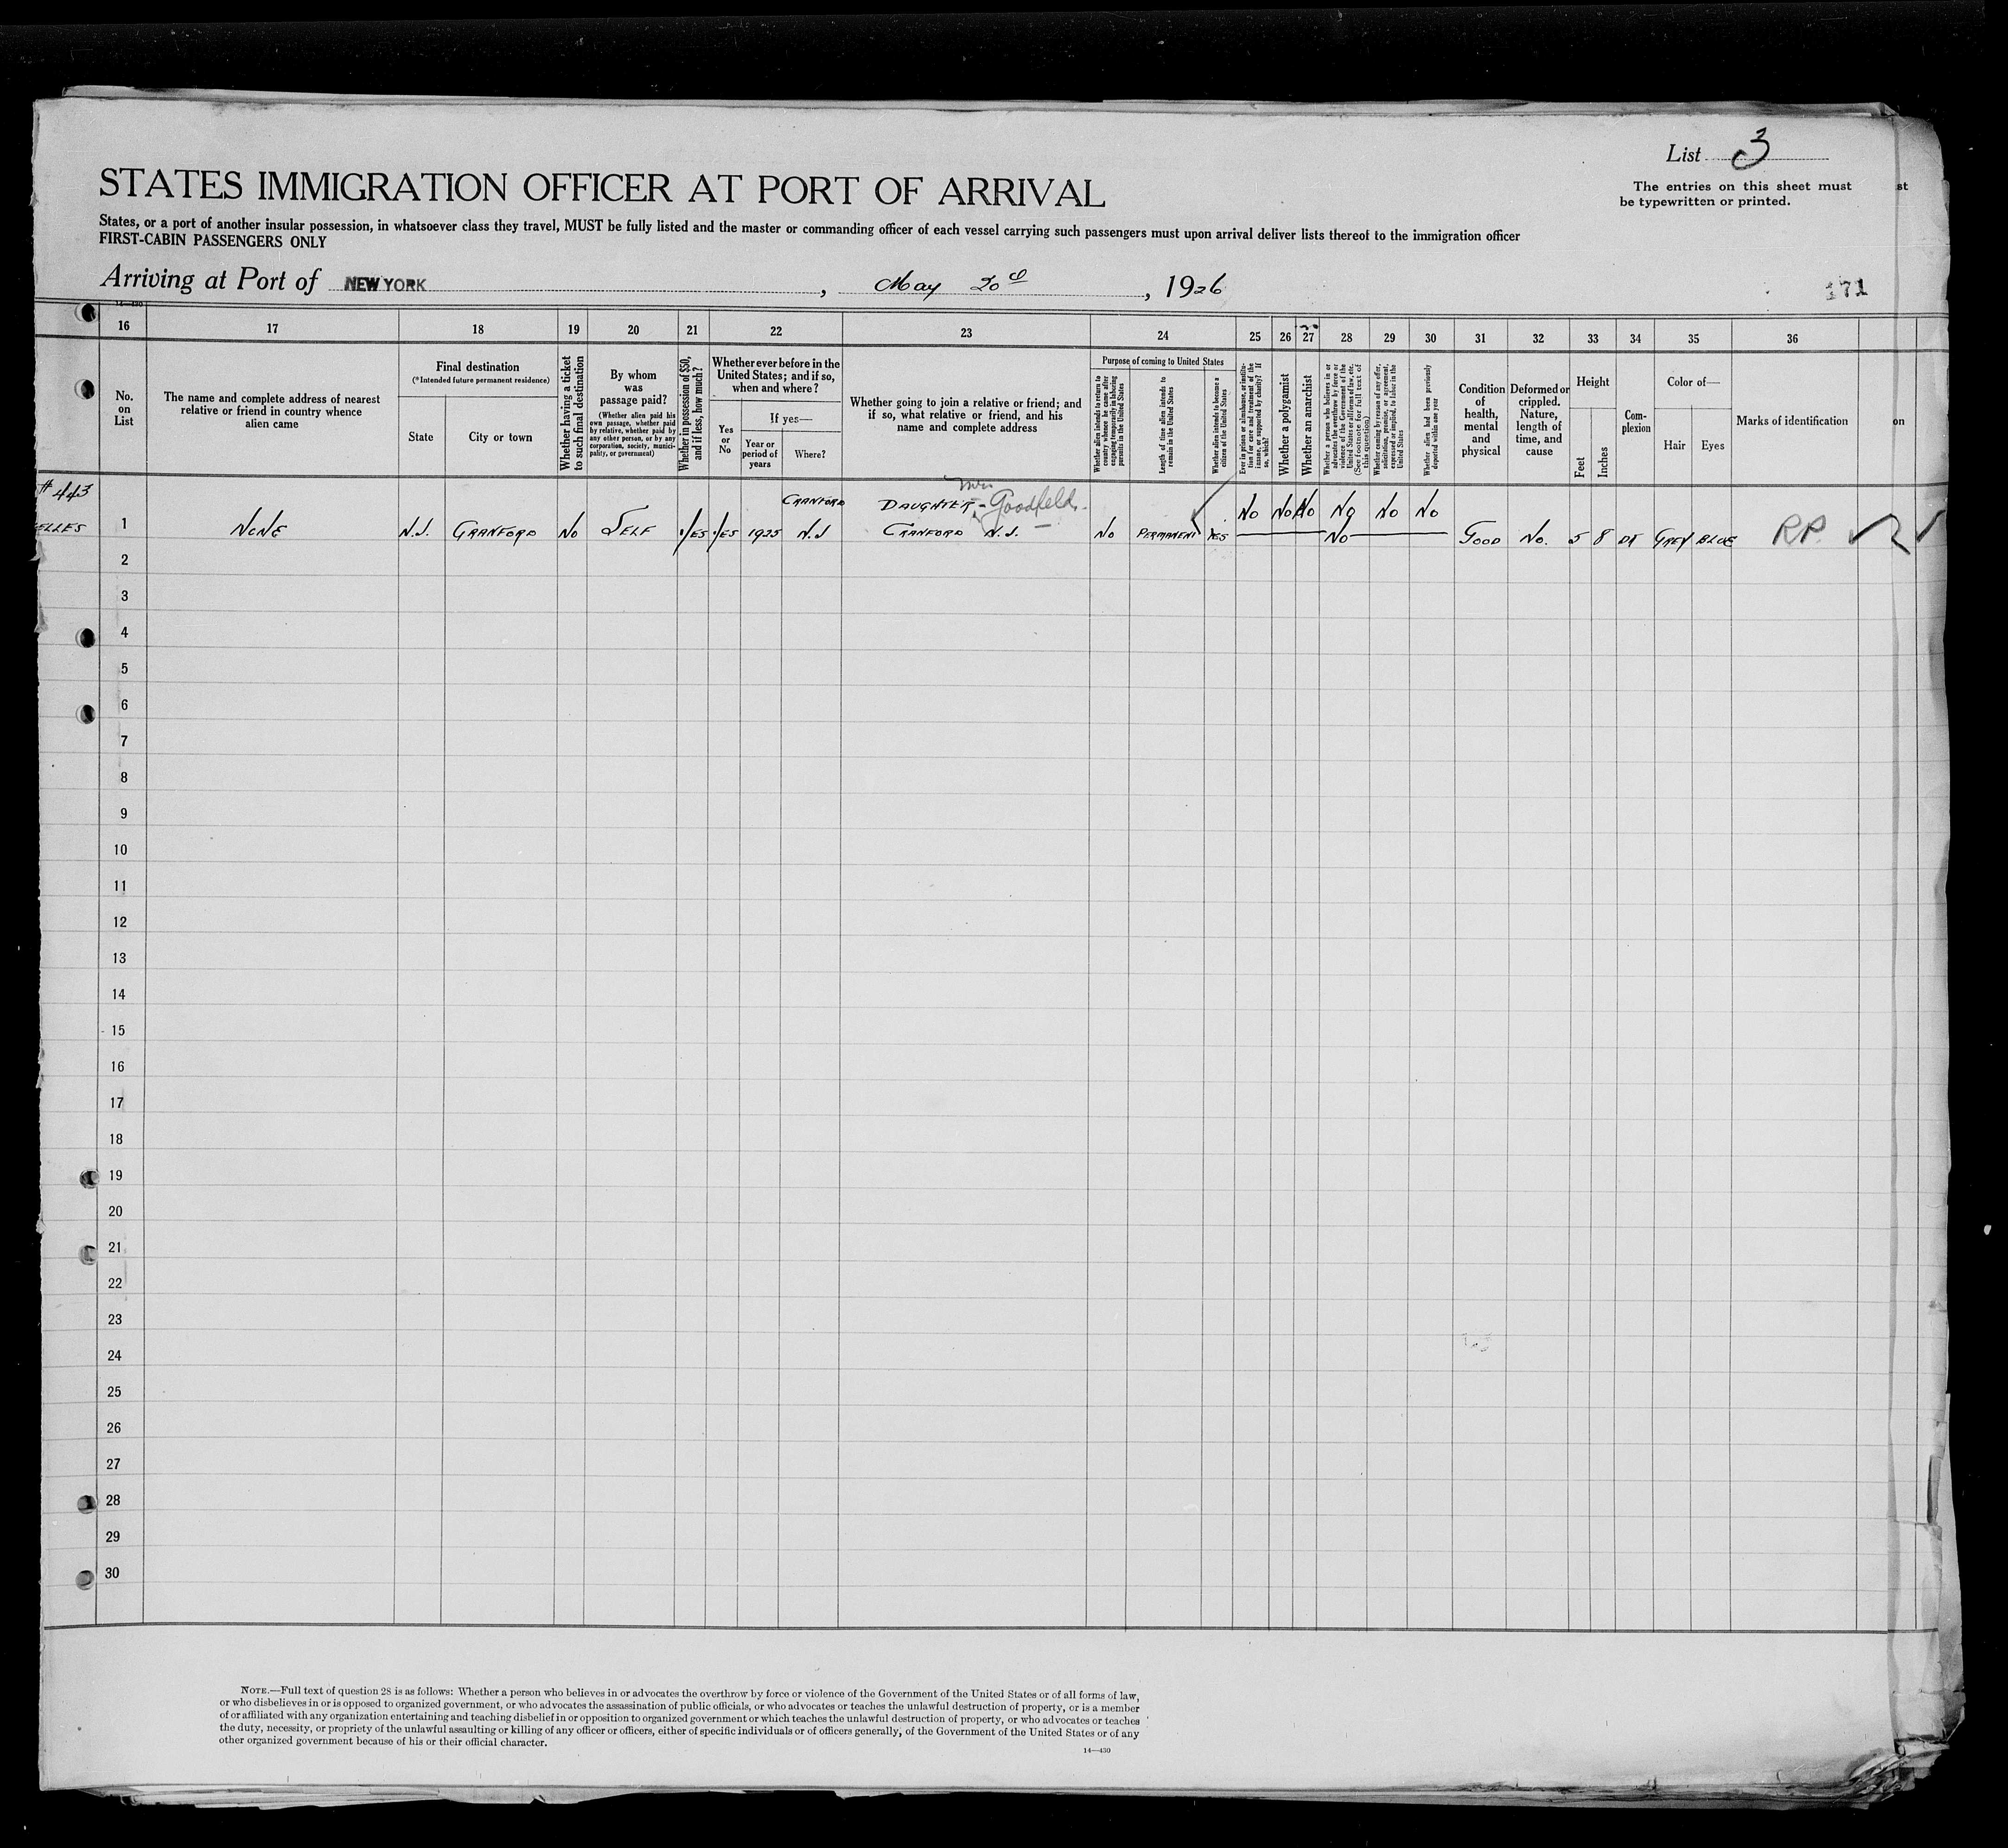 List 3
The entries on this sheet must
be typewritten or printed.
st
STATES IMMIGRATION OFFICER AT PORT OF ARRIVAL
States, or a port of another insular possession, in whatsoever class they travel, MUST be fully listed and the master or commanding officer of each vessel carrying such passengers must upon arrival deliver lists thereof to the immigration officer
FIRST-CABIN PASSENGERS ONLY
Arriving at Port of NEW YORK, May 20th, 1926
171
14—430
16 17 18 19 20 21 22 23 24 25 26 27 28 29 30 31 32 33 34 35 36
No. on List
The name and complete address of nearest relative or friend in country whence alien came
Final destination
(*Intended future permanent residence)
State
City or town
Whether having a ticket to such final destination
By whom was passage paid?
(Whether alien paid his own passage, whether paid by relative, whether paid by any other person, or by any corporation, society, municipality, or government)
Whether in possession of $50, and if less, how much?
Whether ever before in the United States; and if so, when and where?
Yes or No
If yes—
Year or period of years
Where?
Whether going to join a relative or friend; and if so, what relative or friend, and his name and complete address
Purpose of coming to United States
Whether alien intends to return to country whence he came after engaging temporarily in laboring pursuits in the United States
Length of time alien intends to remain in the United States
Whether alien intends to become a citizen of the United States
Ever in prison or almshouse, or institution for care and treatment of the insane, or supported by charity? If so, which?
Whether a polygamist
Whether an anarchist
Whether a person who believes in or advocates the overthrow by force or violence of the Government of the United States or all forms of law, etc. (See footnote for full text of this question.)
Whether coming by reason of any offer, solicitation, promise, or agreement, expressed or implied, to labor in the United States
Whether alien had been previously deported within one year
Condition of health, mental and physical
Deformed or crippled. Nature, length of time, and cause
Height
Feet
Inches
Com-plexion
Color of—
Hair
Eyes
Marks of identification
on
# 443
CRANFORD
Mrs
DAUGHTER - Goodfeld -
No No No No No No
ELLES 1 NONE N.J. CRANFORD No SELF YES YES 1925 N.J CRANFORD N.J. No PERMANENT YES No GOOD No. 5 8 DK GREY BLUE RP.
2
3
4
5
6
7
8
9
10
11
12
13
14
15
16
17
18
19
20
21
22
23
24
25
26
27
28
29
30
NOTE.—Full text of question 28 is as follows: Whether a person who believes in or advocates the overthrow by force or violence of the Government of the United States or of all forms of law,
or who disbelieves in or is opposed to organized government, or who advocates the assassination of public officials, or who advocates or teaches the unlawful destruction of property, or is a member
of or affiliated with any organization entertaining and teaching disbelief in or opposition to organized government or which teaches the unlawful destruction of property, or who advocates or teaches
the duty, necessity, or propriety of the unlawful assaulting or killing of any officer or officers, either of specific individuals or of officers generally, of the Government of the United States or of any
other organized government because of his or their official character.
14—430